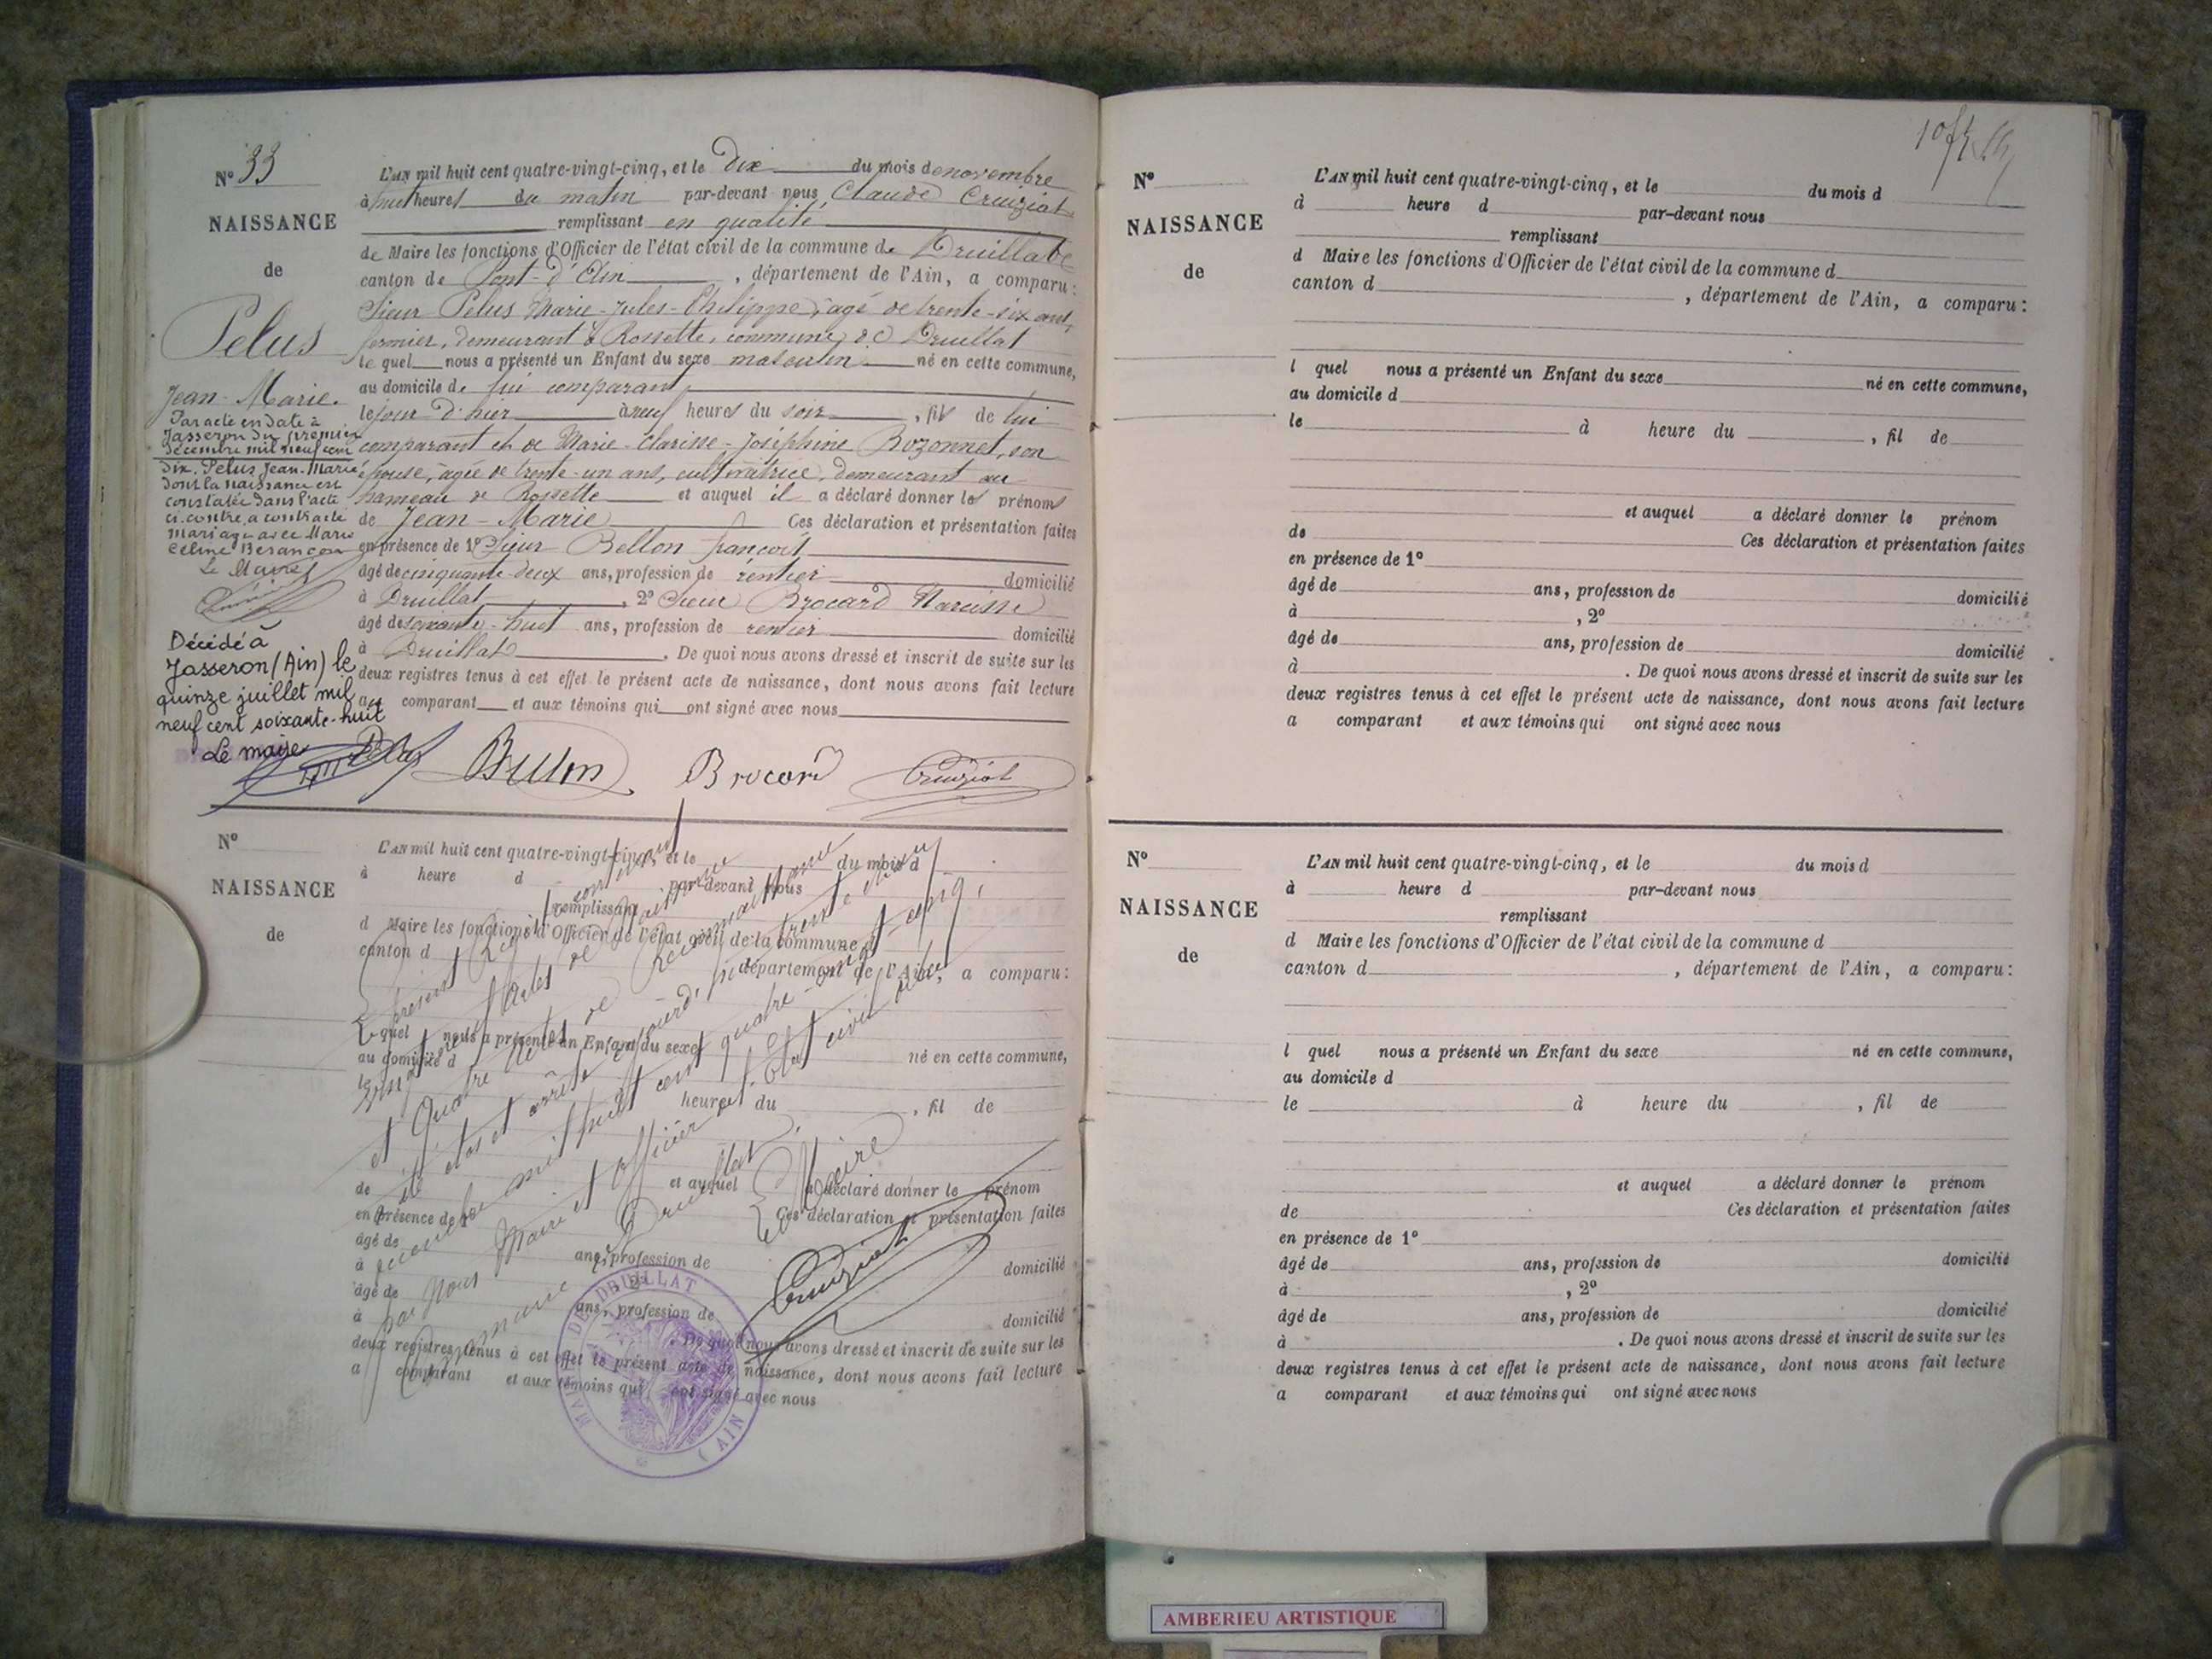 N° 33
NAISSANCE
de
Pelus
Jean-Marie.
Par acte en date à
Jasseron du premier
décembre mil neuf cent
dix, Pelus Jean-Marie
dont la naissance est
constatée dans l'acte
ci-contre, a contracté
mariage avec Marie
Céline Berancon
Le Maire
Décédé à
Jasseron (Ain) le
quinze juillet mil
neuf cent soixante-huit
Le maire
L'AN mil huit cent quatre-vingt-cinq, et le dix du mois de novembre
à huit heures du matin par-devant nous Claude Cruiziat
remplissant en qualité
de Maire les fonctions d'Officier de l'état civil de la commune de Druillat
canton de Pont-d'Ain, département de l'Ain, a comparu:
Sieur Pelus Marie-Jules-Philippe, âgé de trente-six ans,
fermier, demeurant à Rossette, commune de Druillat
le quel nous a présenté un Enfant du sexe masculin né en cette commune,
au domicile de lui comparant,
le jour d'hier à neuf heures du soir, fils de lui
comparant et de Marie-Clarisse-Joséphine Bozonnet, son
épouse, âgée de trente-un ans, cultivatrice, demeurant au
hameau de Rossette et auquel il a déclaré donner les prénoms
de Jean-Marie Ces déclaration et présentation faites
en présence de 1° Sieur Bellon françois
âgé de cinquante-deux ans, profession de rentier domicilié
à Druillat, 2° Sieur Brocard Narcisse
âgé de soixante-huit ans, profession de rentier domicilié
à Druillat. De quoi nous avons dressé et inscrit de suite sur les
deux registres tenus à cet effet le présent acte de naissance, dont nous avons fait lecture
au comparant et aux témoins qui ont signé avec nous
Brocard Cruiziat
N°
NAISSANCE
de
L'AN mil huit cent quatre-vingt-cinq, et le du mois d
à heure d par-devant nous
remplissant
d Maire les fonctions d'Officier de l'état civil de la commune d
canton d , département de l'Ain, a comparu:
l quel nous a présenté un Enfant du sexe né en cette commune,
au domicile d
le à heure du , fil de
et auquel a déclaré donner le prénom
de Ces déclaration et présentation faites
en présence de 1°
âgé de ans, profession de domicilié
à , 2°
âgé de ans, profession de domicilié
à . De quoi nous avons dressé et inscrit de suite sur les
deux registres tenus à cet effet le présent acte de naissance, dont nous avons fait lecture
a comparant et aux témoins qui ont signé avec nous
Le présent Registre contenant
Actes de Naissance
et Quatre Actes de Reconnaissance
été clos et arrêté aujourd'hui trente et un
décembre mil huit cent quatre-vingt-cinq,
par Nous Maire et Officier de l'Etat civil de la
Commune de Druillat.
Le Maire
Cruiziat
MAIRIE DE DRUILLAT
(AIN)
N°
NAISSANCE
de
L'AN mil huit cent quatre-vingt-cinq, et le du mois d
à heure d par-devant nous
remplissant
d Maire les fonctions d'Officier de l'état civil de la commune d
canton d , département de l'Ain, a comparu:
l quel nous a présenté un Enfant du sexe né en cette commune,
au domicile d
le à heure du , fil de
et auquel a déclaré donner le prénom
de Ces déclaration et présentation faites
en présence de 1°
âgé de ans, profession de domicilié
à , 2°
âgé de ans, profession de domicilié
à . De quoi nous avons dressé et inscrit de suite sur les
deux registres tenus à cet effet le présent acte de naissance, dont nous avons fait lecture
a comparant et aux témoins qui ont signé avec nous
N°
NAISSANCE
de
L'AN mil huit cent quatre-vingt-cinq, et le du mois d
à heure d par-devant nous
remplissant
d Maire les fonctions d'Officier de l'état civil de la commune d
canton d , département de l'Ain, a comparu:
l quel nous a présenté un Enfant du sexe né en cette commune,
au domicile d
le à heure du , fil de
et auquel a déclaré donner le prénom
de Ces déclaration et présentation faites
en présence de 1°
âgé de ans, profession de domicilié
à , 2°
âgé de ans, profession de domicilié
à . De quoi nous avons dressé et inscrit de suite sur les
deux registres tenus à cet effet le présent acte de naissance, dont nous avons fait lecture
a comparant et aux témoins qui ont signé avec nous
AMBERIEU ARTISTIQUE